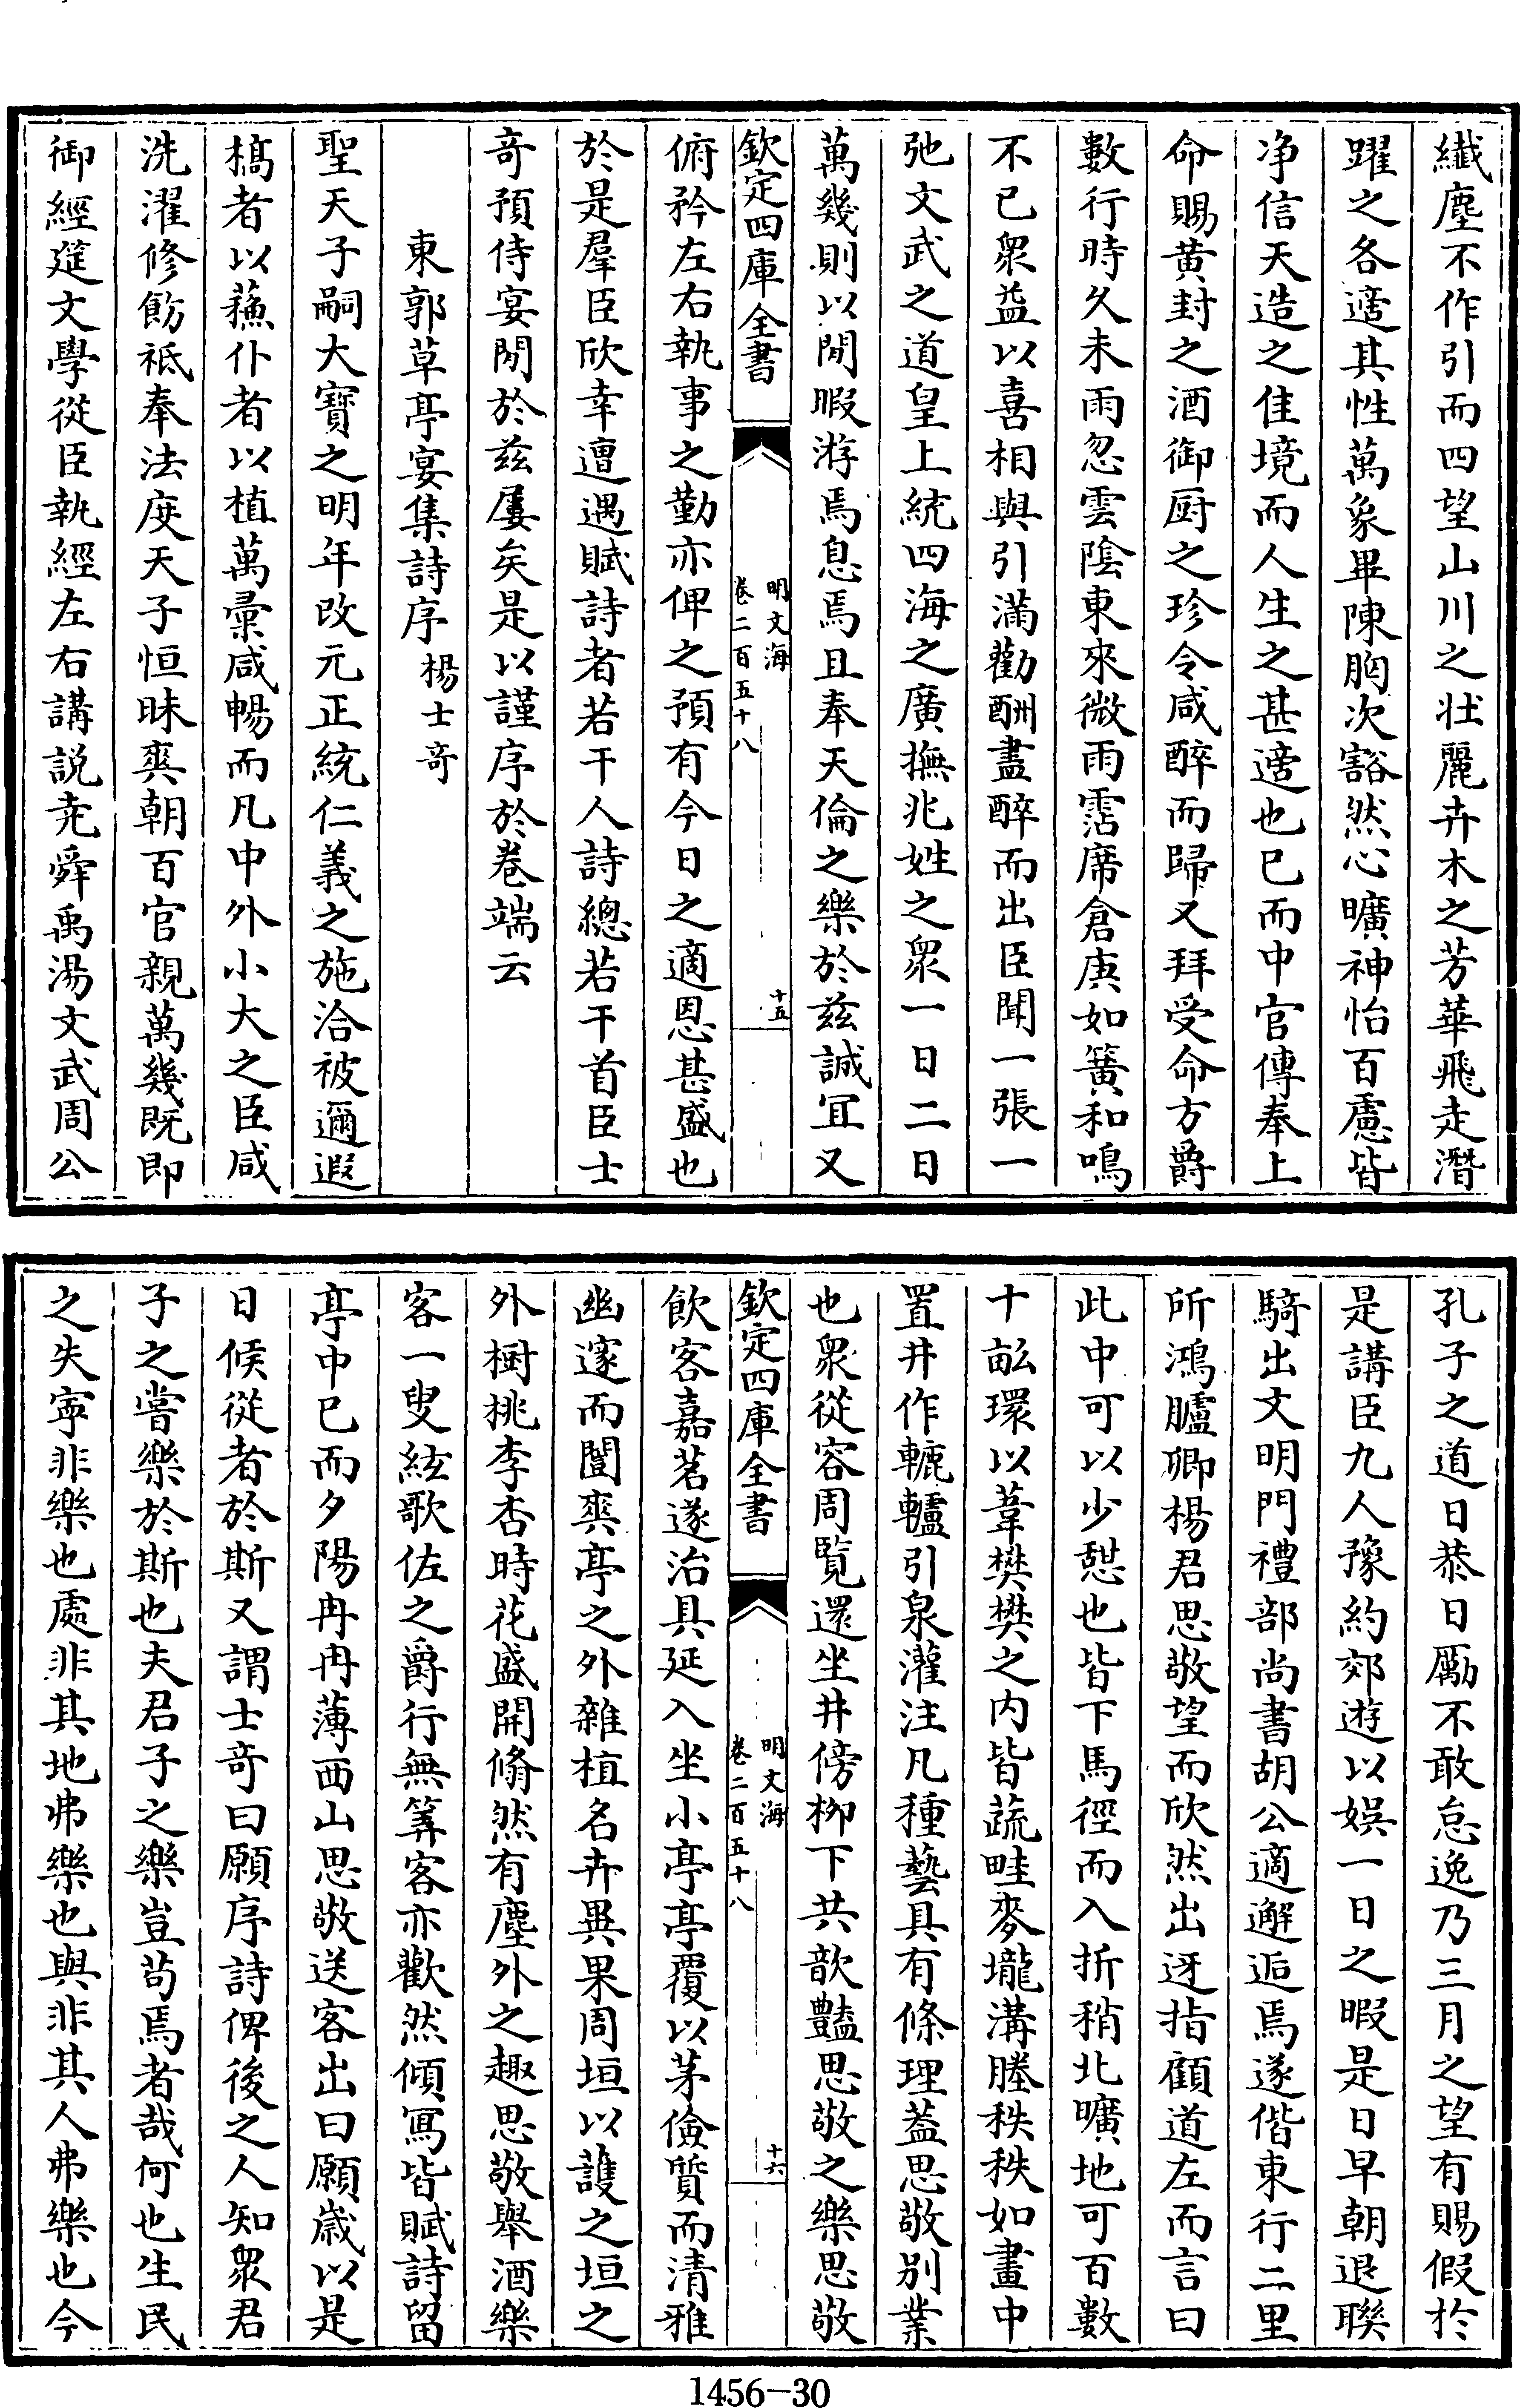 纖塵不作引而四望山川之壯麗卉木之芳華飛走潛
躍之各適其性萬象畢陳胸次豁然心曠神怡百慮皆
净信天造之佳境而人生之甚適也已而中官傳奉上
命賜黄封之酒御厨之珍令咸醉而歸又拜受命方爵
數行時久未雨忽雲陰東來微雨霑席倉庚如簧和鳴
不已衆益以喜相與引滿勸酬盡醉而出臣聞一張一
弛文武之道皇上統四海之廣撫兆姓之衆一日二日
萬幾則以閒暇游焉息焉且奉天倫之樂於兹誠宜又
欽定四庫全書
明文海
卷二百五十八
十五
俯矜左右執事之勤亦俾之預有今日之適恩甚盛也
於是羣臣欣幸遭遇賦詩者若干人詩總若干首臣士
奇預侍宴閒於兹屢矣是以謹序於卷端云
東郭草亭宴集詩序 楊士奇
聖天子嗣大寶之明年改元正統仁義之施洽被邇遐
槁者以蘓仆者以植萬彚咸暢而凡中外小大之臣咸
洗濯修飭祗奉法度天子恒昧爽朝百官親萬幾既即
御經筵文學從臣執經左右講説堯舜禹湯文武周公
孔子之道日恭日勵不敢怠逸乃三月之望有賜假於
是講臣九人豫約郊遊以娯一日之暇是日早朝退聯
騎出文明門禮部尚書胡公適邂逅焉遂偕東行二里
所鴻臚卿楊君思敬望而欣然出迓指顧道左而言曰
此中可以少憇也皆下馬徑而入折稍北曠地可百數
十畝環以葦樊樊之内皆蔬畦麥壠溝塍秩秩如畫中
置井作轆轤引泉灌注凡種藝具有條理葢思敬别業
也衆從容周覽還坐井傍栁下共歆豔思敬之樂思敬
欽定四庫全書
明文海
卷二百五十八
十六
飲客嘉茗遂治具延入坐小亭亭覆以茅儉質而清雅
幽邃而闓爽亭之外雜植名卉異果周垣以護之垣之
外樹桃李杏時花盛開翛然有塵外之趣思敬舉酒樂
客一叟絃歌佐之爵行無筭客亦歡然傾寫皆賦詩留
亭中已而夕陽冉冉薄西山思敬送客出曰願歲以是
日候從者於斯又謂士奇曰願序詩俾後之人知衆君
子之嘗樂於斯也夫君子之樂豈苟焉者哉何也生民
之失寧非樂也處非其地弗樂也與非其人弗樂也今
1456-30